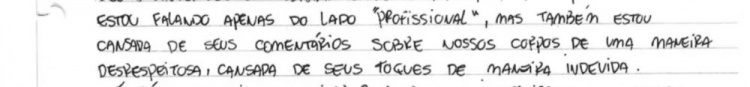 ESTOU FALANDO APENAS DO LADO "PROFISSIONAL", MAS TAMBÉM ESTOU
CANSADA DE SEUS COMENTÁRIOS SOBRE NOSSOS CORPOS DE UMA MANEIRA
DESRESPEITOSA, CANSADA DE SEUS TOQUES DE MANEIRA INDEVIDA.